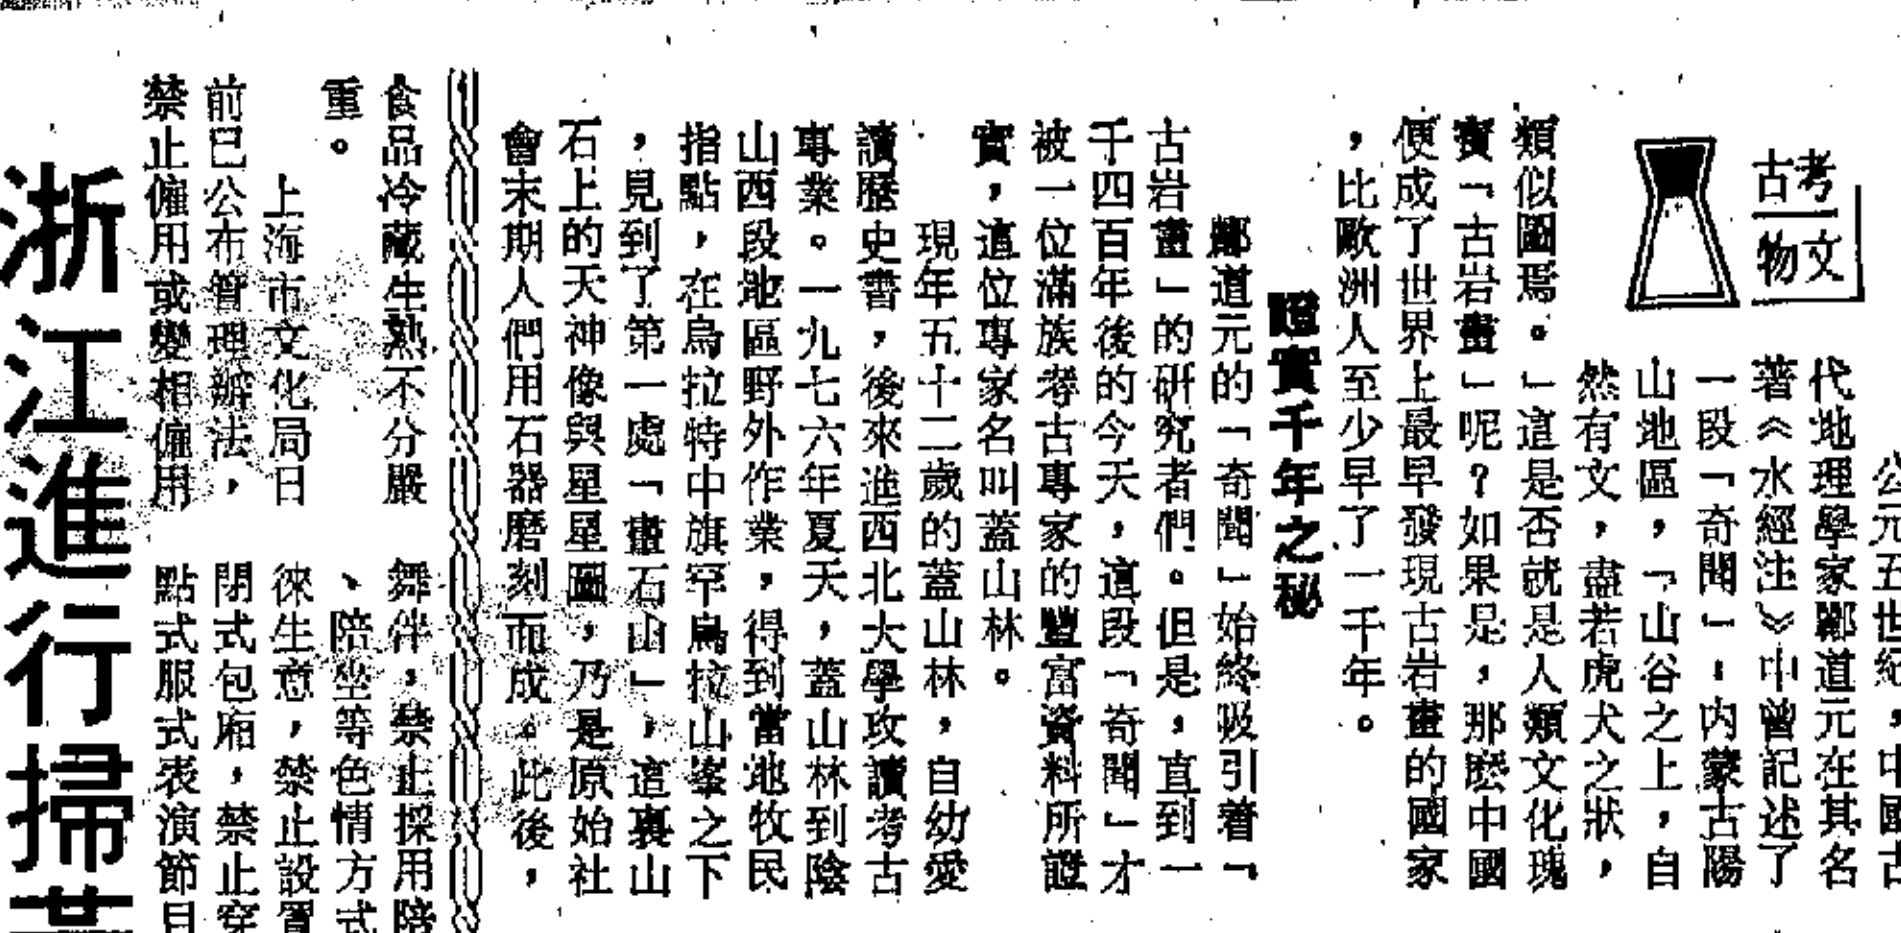 考古
文物
公元五世紀，中國古
代地理學家酈道元在其名
著《水經注》中曾記述了
一段「奇聞」：内蒙古陽
山地區，「山谷之上，自
然有文，盡若虎犬之狀，
類似圖焉。」這是否就是人類文化瑰
寶「古岩畫」呢？如果是，那麽中國
便成了世界上最早發現古岩畫的國家
，比歐洲人至少早了一千年。
證實千年之秘
酈道元的「奇聞」始終吸引着「
古岩畫」的研究者們。但是，直到一
千四百年後的今天，這段「奇聞」才
被一位滿族考古專家的豐富資料所證
實，這位專家名叫蓋山林。
現年五十二歲的蓋山林，自幼愛
讀歷史書，後來進西北大學攻讀考古
專業。一九七六年夏天，蓋山林到陰
山西段地區野外作業，得到當地牧民
指點，在烏拉特中旗罕烏拉山峯之下
，見到了第一處「畫石山」，這裏山
石上的天神像與星星圖，乃是原始社
會末期人們用石器磨刻而成。此後，
食品冷藏生熟不分嚴
重。
上海市文化局日
前已公布管理辦法，
禁止僱用或變相僱用
舞伴，禁止採用陪
、陪坐等色情方式
徠生意，禁止設置
閉式包廂，禁止穿
點式服式表演節目
浙江進行掃黃